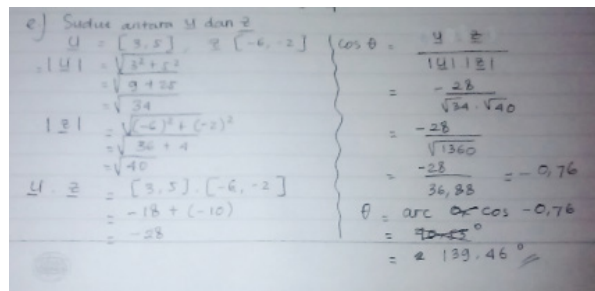 e) Sudut antara y dan z
y = [3, 5] , z [-6, -2]
|y| = √3² + 5²
= √9 + 25
= √34
|z| = √(-6)² + (-2)²
= √36 + 4
= √40
y . z = [3, 5] . [-6, -2]
= -18 + (-10)
= -28
cos θ = y z / |y| |z|
= -28 / √34 . √40
= -28 / √1360
= -28 / 36,88 = -0,76
θ = arc cos -0,76
=
= 139.46°